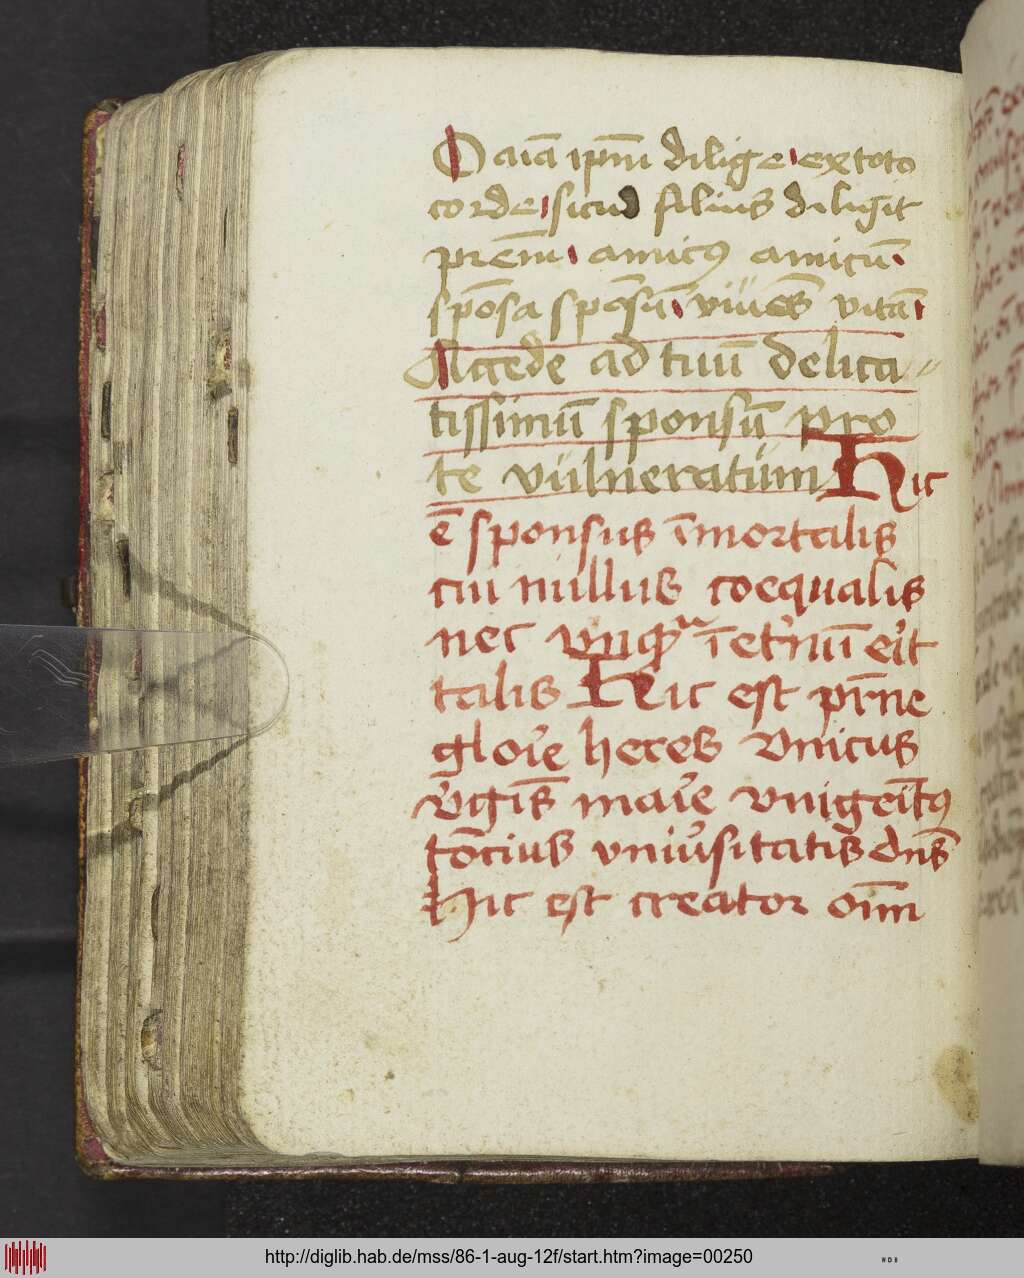 O aīa ipm̄ dilige ex toto
corde sicud filius diligit
prēm amicꝰ amicū
spōsa spōsū viuēs vitā
Accede ad tuū delica
tissimū sponsū pro
te vulneratum Hic
ē sponsus īmortalis
cui nullus coequalis
nec vnqꝫ ī et̓nū eīt
talis Hic est pr̄ne
glor̓e heres vnicus
v̓gīs mar̓e vnigeīt̄ꝰ
tōcius vniu̓sitatis dn̄s
Hic est creator oīm
http://diglib.hab.de/mss/86-1-aug-12f/start.htm?image=00250